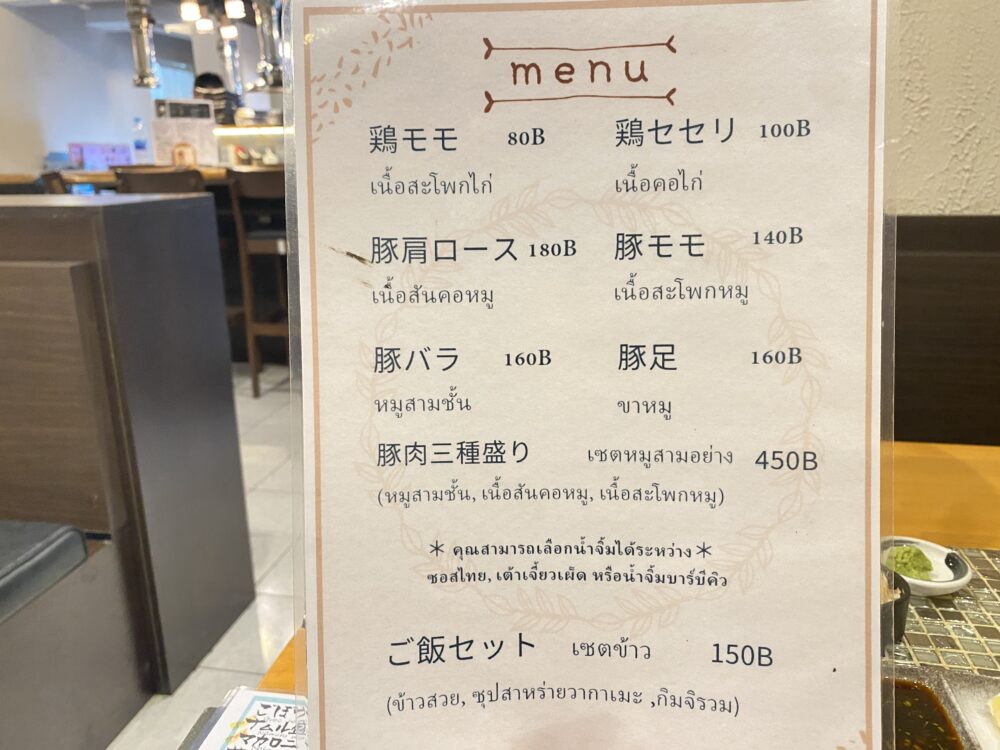 menu
鶏モモ 80B
鶏セセリ 100B
เนื้อสะโพกไก่
เนื้อคอไก่
豚肩ロース 180B
豚モモ 140B
เนื้อสันคอหมู
เนื้อสะโพกหมู
豚バラ 160B
豚足 160B
หมูสามชั้น
ขาหมู
豚肉三種盛り เซตหมูสามอย่าง 450B
(หมูสามชั้น, เนื้อสันคอหมู, เนื้อสะโพกหมู)
＊ คุณสามารถเลือกน้ำจิ้มได้ระหว่าง＊
ซอสไทย, เต้าเจี้ยวเผ็ด หรือน้ำจิ้มบาร์บีคิว
ご飯セット เซตข้าว 150B
(ข้าวสวย, ซุปสาหร่ายวากาเมะ ,กิมจิรวม)
ナムル
マカロニ